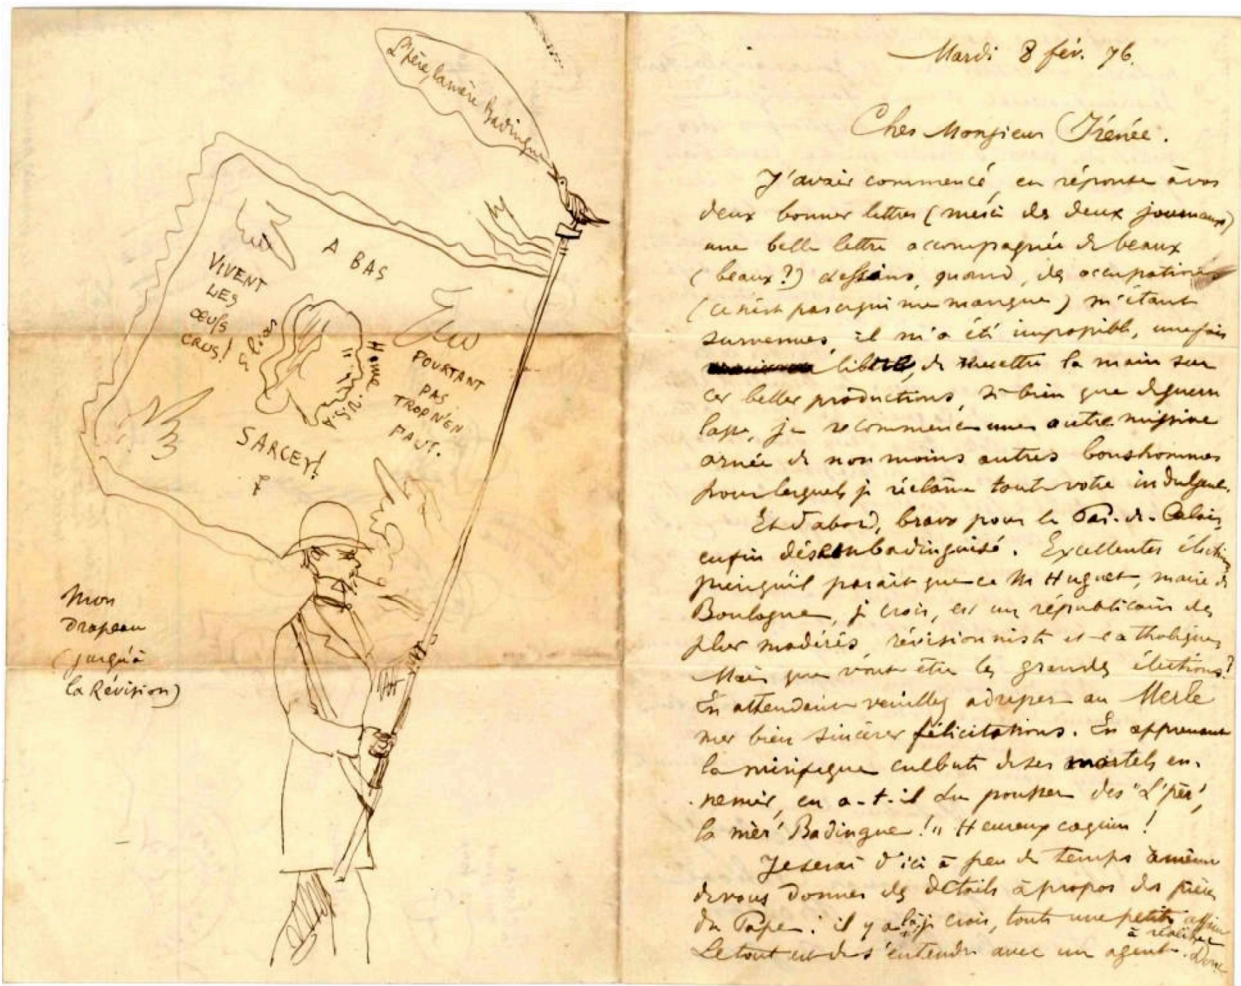 L'père, la mère Badingue
A BAS
VIVENT
LES
ŒUFS
CRUS!
Elias
Home. USA
POURTANT
PAS
TROP N'EN
FAUT.
SARCEY!
Mon
Drapeau
(jusqu'à
la Révision)
Mardi 8 fév. 76.
Cher Monsieur Irénée.
J'avais commencé, en réponse à vos
deux bonnes lettres (merci des deux journaux)
une belle lettre accompagnée de beaux
(beaux?) dessins, quand, des occupations
(ce n'est pas ce qui me manque) m'étant
survenues, il m'a été impossible, une fois
libre, de remettre la main sur
ces belles productions, si bien que de guerre
lasse, je recommence une autre missive
ornée de non moins autres bonshommes
pour lesquels je réclame toute votre indulgence.
Et d'abord, bravo pour le Pas-de-Calais
enfin désembadinguisé. Excellentes élections
puisqu'il paraît que ce M Huguet, maire de
Boulogne, je crois, est un républicain des
plus modérés, révisionniste et catholique
Mais que vont être les grandes élections?
En attendant veuillez adresser au Merle
mes bien sincères félicitations. En apprenant
la mirifique culbute de ses mortels en-
-nemis, en a-t-il dû pousser des "L'pèr',
la mèr' Badingue!" Heureux coquin!
Je serai d'ici à peu de temps à même
de vous donner des détails à propos des
du Pape: il y a là, je crois, toute une petite affaire
à réaliser
Le tout est de s'entendre avec un agent. Donc